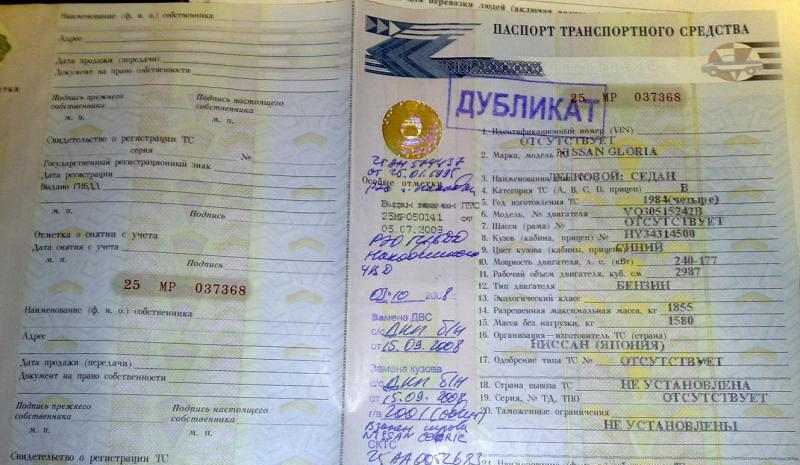 для перевозки людей (включая
Наименование (ф. и. о.) собственника
Адрес
Дата продажи (передачи)
Документ на право собственности
Подпись прежнего собственника
Подпись настоящего собственника
м. п.
м. п.
Свидетельство о регистрации ТС
серия
№
Государственный регистрационный знак
Дата регистрации
Выдано ГИБДД
м. п.
Подпись
Отметка о снятии с учета
Дата снятия с учета
м. п.
Подпись
25 МР 037368
Наименование (ф. и. о.) собственника
Адрес
Дата продажи (передачи)
Документ на право собственности
Подпись прежнего собственника
Подпись настоящего собственника
м. п.
м. п.
Свидетельство о регистрации ТС
ПАСПОРТ ТРАНСПОРТНОГО СРЕДСТВА
ДУБЛИКАТ
25 МР 037368
Особые отметки
05.07.2009
2008
Замена ДВС
ДКП б/н
от 15.09.2008
Замена кузова
ДКП б/н
от 15.09.2008
2001
NISSAN
СКТС
1. Идентификационный номер (VIN)
ОТСУТСТВУЕТ
2. Марка, модель NISSAN GLORIA
3. Наименование ЛЕГКОВОЙ: СЕДАН
4. Категория ТС (А, В, С, D, прицеп) В
5. Год изготовления ТС 1984(четыре)
6. Модель, № двигателя VQ30515242B
7. Шасси (рама) № ОТСУТСТВУЕТ
8. Кузов (кабина, прицеп) № HY34314500
9. Цвет кузова (кабины, прицепа) СИНИЙ
10. Мощность двигателя, л. с. (кВт) 240-177
11. Рабочий объем двигателя, куб. см 2987
12. Тип двигателя БЕНЗИН
13. Экологический класс
14. Разрешенная максимальная масса, кг 1855
15. Масса без нагрузки, кг 1580
16. Организация—изготовитель ТС (страна)
НИССАН (ЯПОНИЯ)
17. Одобрение типа ТС № ОТСУТСТВУЕТ
18. Страна вывоза ТС НЕ УСТАНОВЛЕНА
19. Серия, № ТД, ТПО ОТСУТСТВУЕТ
20. Таможенные ограничения
НЕ УСТАНОВЛЕНЫ
21. Наименование (ф. и. о.)